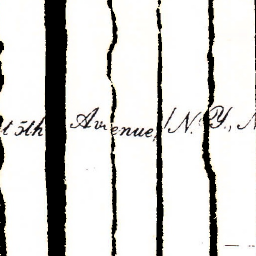 5th Avenue, N.Y.,